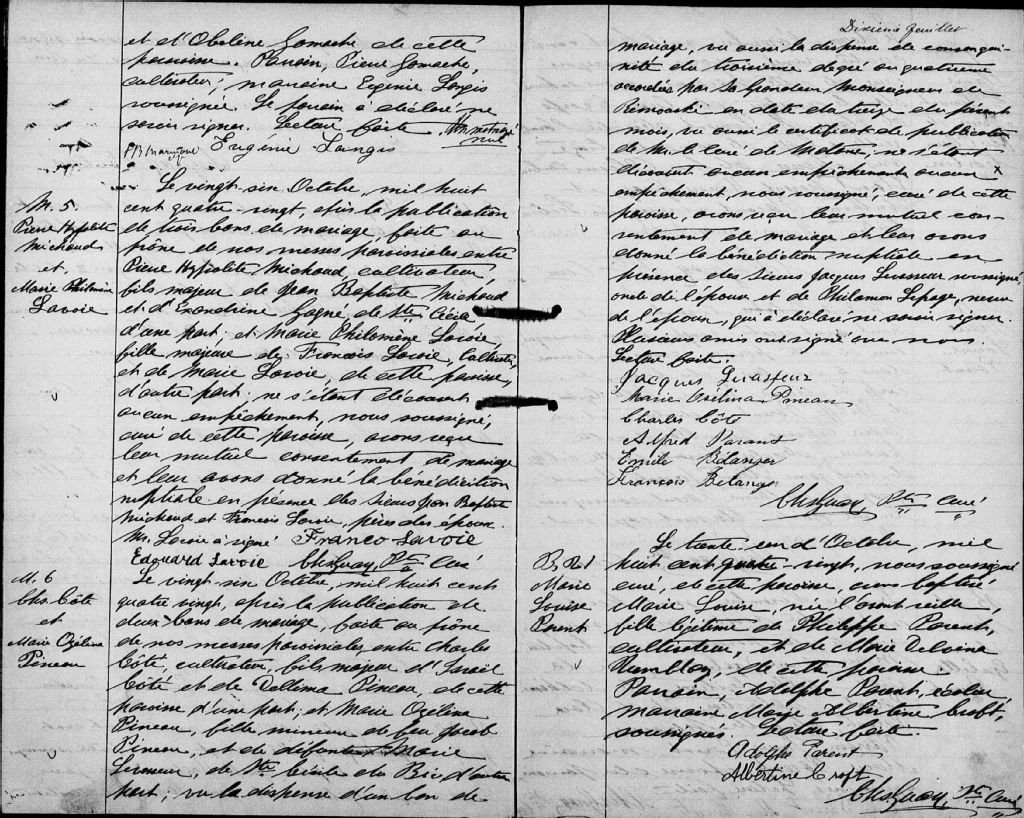 et d'Obeline Gamache de cette
paroisse. Parrain, Pierre Gamache,
cultivateur; marraine Eugénie Langis
soussignée. Le parrain a déclaré ne
savoir signer. Lecture faite
nul
Eugénie Langis
M. 5.
Pierre Hypolite
Michaud
et.
Marie Philomène
Lavoie
Le vingt-six Octobre, mil huit
cent quatre-vingt, après la publication
de trois bans de mariage, faite au
prône de nos messes paroissiales entre
Pierre Hypolite Michaud, cultivateur,
fils majeur de Jean Baptiste Michaud
et d'Exandrine Gagné de Ste Cécile
d'une part; et Marie Philomène Lavoie,
fille majeure de François Lavoie, Cultivateur,
et de Marie Lavoie, de cette paroisse,
d'autre part; ne s'étant découvert
aucun empêchement, nous soussigné,
curé de cette paroisse, avons reçu
leur mutuel consentement de mariage
et leur avons donné la bénédiction
nuptiale en présence des sieurs Jean Baptiste
Michaud et François Lavoie, pères des époux.
Mr. Lavoie a signé Franco Lavoie
Edouard Lavoie Chs Guay, Ptre Curé
M. 6
Chs. Côté
et
Marie Ozélina
Pineau
Le vingt-six Octobre, mil huit cent
quatre vingt, après la publication de
deux bans de mariage, faite au prône
de nos messes paroissiales, entre Charles
Côté, cultivateur, fils majeur d'Israïl
Côté et de Delima Pineau, de cette
paroisse d'une part; et Marie Ozélina
Pineau, fille mineure de feu Jacob
Pineau, et de défunte Marie
de Ste Cécile du Bic d'autre
part; vu la dispense d'un ban de
Dixième feuillet
mariage, vu aussi la dispense de consangui-
nité du troisième degré au quatrième
accordées par Sa Grandeur Monseigneur de
Rimouski en date du treize du présent
mois, vu aussi le certificat de publication
de Mr. le Curé de Matane; ne s'étant
découvert aucun empêchement aucun x
empêchement, nous soussigné, curé de cette
paroisse, avons reçu leur mutuel con-
sentement de mariage et leur avons
donné la bénédiction nuptiale en
présence des sieurs Jacques Levasseur soussigné,
oncle de l'époux et de Philamon Lepage, neveu
de l'époux, qui a déclaré ne savoir signer.
Plusieurs amis ont signé avec nous.
Lecture faite.
Jacques Levasseur
Marie Ozélina Pineau
Charles Côté
Alfred Parant
Emile Bélanger
François Belanger
Chs Guay Ptre Curé
B. 21
Marie
Louise
Parent
Le trente-un d'Octobre, mil
huit cent quatre-vingt, nous soussigné
curé, de cette paroisse, avons baptisé
Marie Louise, née l'avant veille,
fille légitime de Philippe Parent,
cultivateur, et de Marie Delvina
de cette paroisse.
Parrain, Adolphe Parent, écolier,
marraine Marie Albertine Croft,
soussignés. Lecture faite.
Adolphe Parent
Albertine Croft
Chs Guay, Ptre Curé